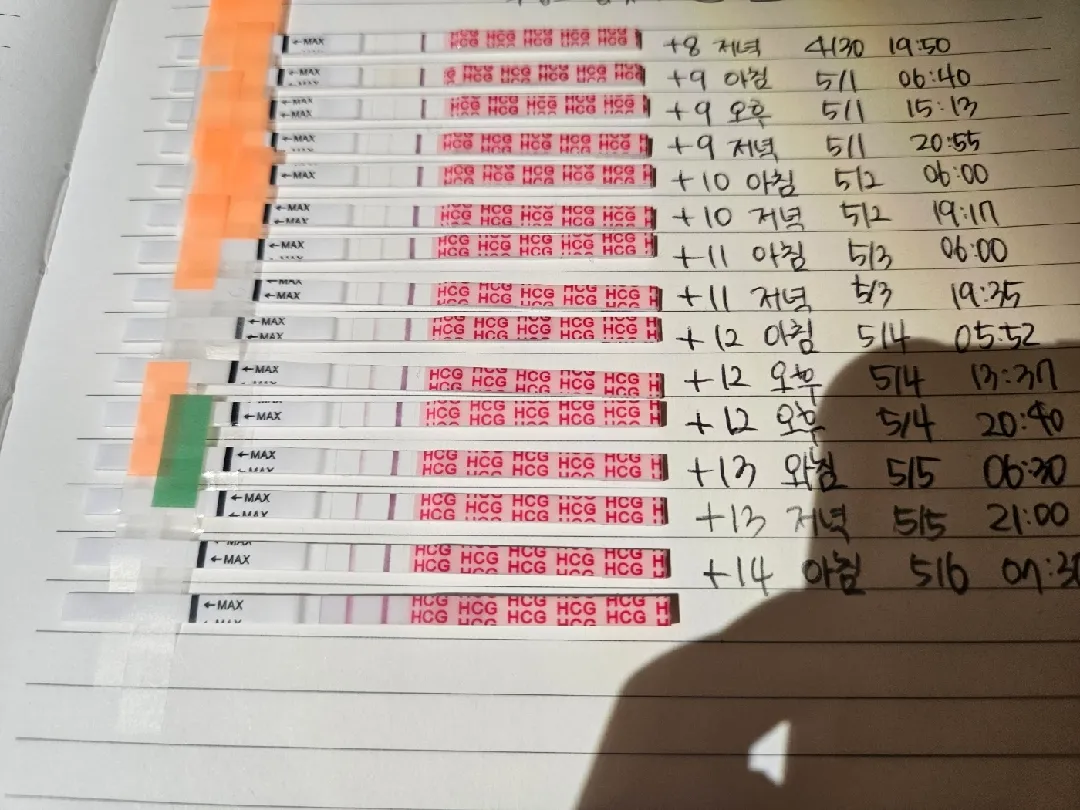 ←MAX HCG HCG HCG HCG +8 저녁 4/30 19:50
←MAX HCG HCG HCG HCG HCG +9 아침 5/1 06:40
←MAX HCG HCG HCG HCG HCG +9 오후 5/1 15:13
←MAX HCG HCG HCG HCG +9 저녁 5/1 20:55
←MAX HCG HCG HCG HCG +10 아침 5/2 06:00
←MAX HCG HCG HCG HCG H +10 저녁 5/2 19:17
←MAX HCG HCG HCG HCG +11 아침 5/3 06:00
←MAX HCG HCG HCG HCG H +11 저녁 5/3 19:35
←MAX HCG HCG HCG HCG H +12 아침 5/4 05:52
←MAX HCG HCG HCG HCG H +12 오후 5/4 13:37
←MAX HCG HCG HCG HCG H +12 오후 5/4 20:40
←MAX HCG HCG HCG HCG H +13 5/5 06:30
←MAX HCG HCG HCG HCG H +13 저녁 5/5 21:00
←MAX HCG HCG HCG HCG HCG H +14 아침 5/6
←MAX HCG HCG HCG HCG HCG H